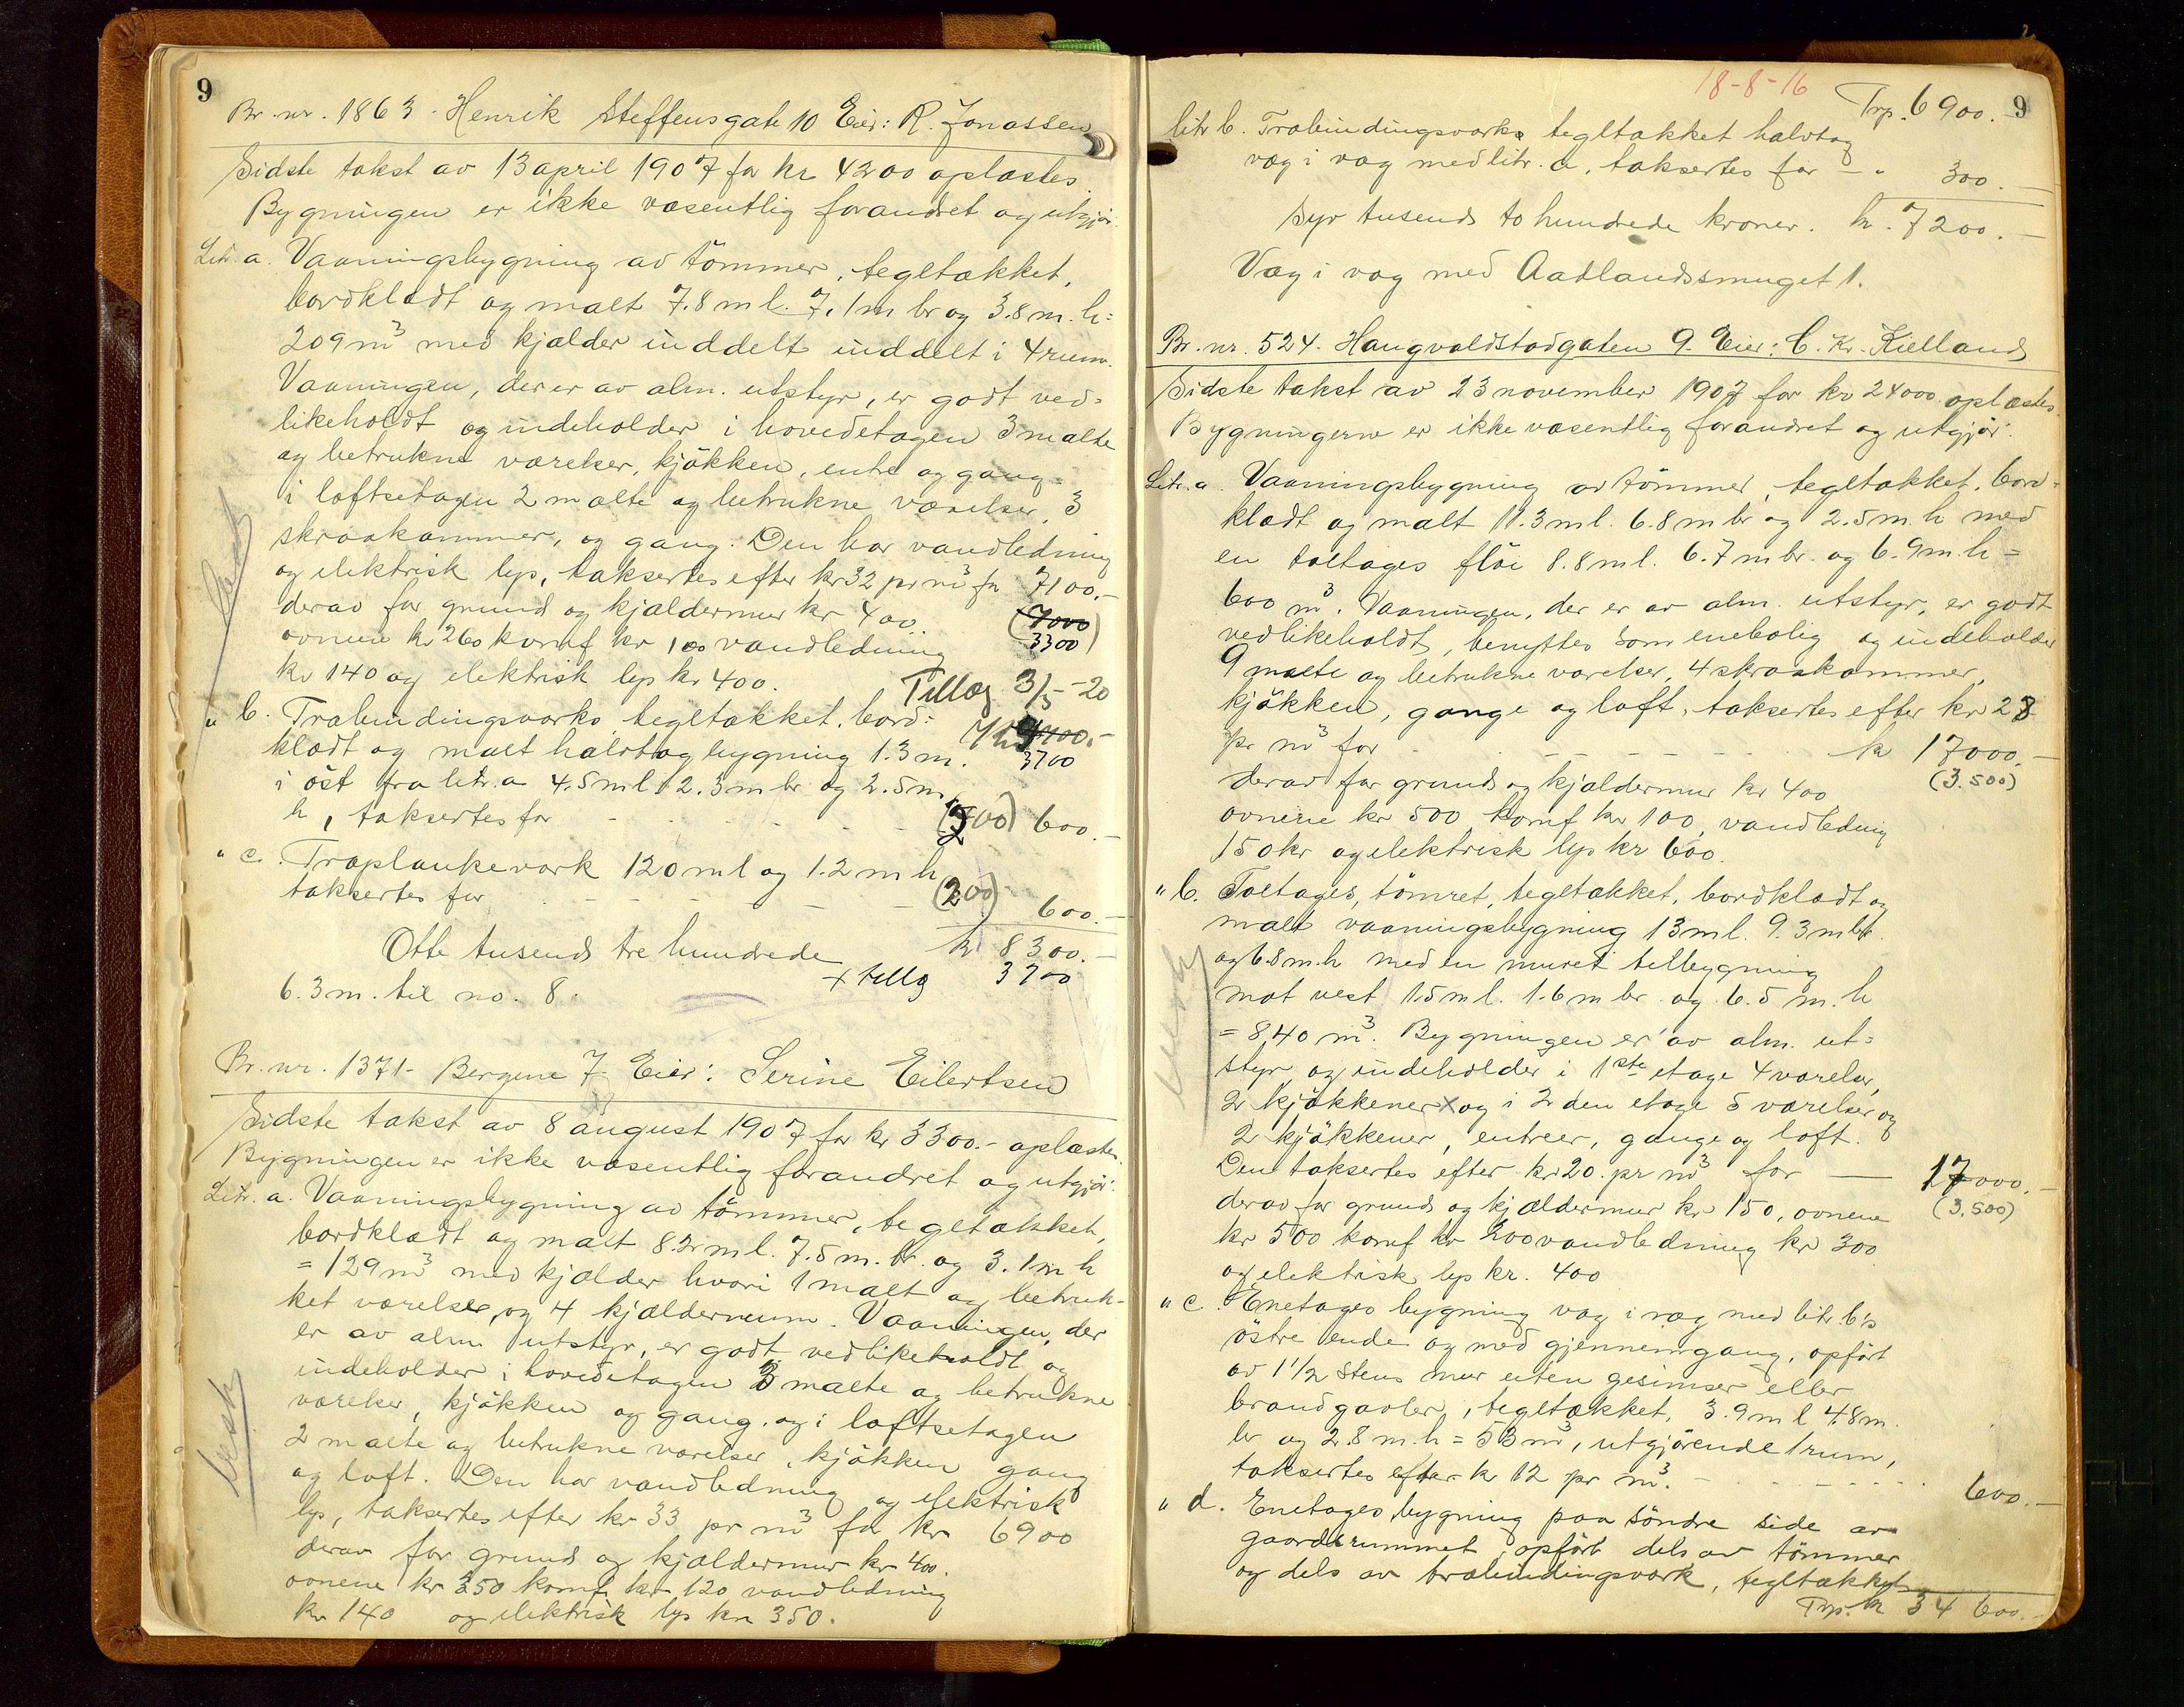 9
Br. nr. 1863 - Henrik Steffensgate 10 Eier: R. Jonassen
Sidste takst av 13 april 1907 for kr 4200 oplæstes.
Bygningen er ikke væsentlig forandret og utgjör:
Litr. a. Vaaningsbygning av tömmer, tegltækket,
bordklædt og malt 7.8 m l. 7.1 m br og 3.8 m. h =
209 m³ med kjælder inddelt inddelt i 4 rum.
Vaaningen, der er av alm. utstyr, er godt ved-
likeholdt og indeholder i hovedetagen 3 malte
og betrukne værelser, kjökken, entre og gang -
i loftsetagen 2 malte og betrukne værelser, 3
skraakammer, og gang. Den har vandledning
og elektrisk lys, taksertes efter kr 32 pr m³ for 7100.-
derav for grund og kjældermur kr 400
(7000
3300)
ovnene kr 260 komf kr 100 vandledning
kr 140 og elektrisk lys kr 400.
Tillæg 3/5-20
" b. Træbindingsværks, tegltækket, bord-
klædt og malt halvtag bygning 1.3 m.
3700
i öst fra litr. a 4.5 m l 2.3 m br og 2.5 m
h, taksertes for - - - - (200) 600.-
" c. Træplankeværk 120 m l og 1.2 m h
taksertes for - - - - (200) 600.-
Otte tusend tre hundrede kr 8300.-
6.3 m. til no. 8. + tillæg 3700
Br. nr. 1371 - Bergene 7. Eier: Serine Eilertsen
Sidste takst av 8 august 1907 for kr 3300.- oplæstes.
Bygningen er ikke væsentlig forandret og utgjör:
Litr. a. Vaaningsbygning av tömmer, tegltækket,
bordklædt og malt 8.2 m l. 7.5 m. br. og 3.1 m h
= 129 m³ med kjælder hvori 1 malt og betruk-
ket værelse, og 4 kjælderrum. Vaaningen, der
er av alm utstyr, er godt vedlikeholdt og
indeholder i hovedetagen 3 malte og betrukne
værelser, kjökken og gang. og i loftsetagen
2 malte og betrukne værelser, kjökken gang
og loft. Den har vandledning og elektrisk
lys, taksertes efter kr 33 pr m³ for kr 6900
derav for grund og kjældermur kr 400.
ovnene kr 350 komf. kr 120 vandledning
kr 140 og elektrisk lys kr 350.
18-8-16
Trp. 6900. 9
litr b. Træbindingsværks tegltækket halvtag
væg i væg med litr. a, taksertes for - " 300.-
Syv tusend to hundrede kroner. kr. 7200.-
Væg i væg med Aadlandssmuget 1.
Br. nr. 524. Haugvaldstadgaten 9. Eier: C. Kr. Kielland
Sidste takst av 23 november 1907 for kr 24000 oplæstes.
Bygningerne er ikke væsentlig forandret og utgjör:
Litr. a Vaaningsbygning av tömmer, tegltækket, bord-
klædt og malt 11.3 m l. 6.8 m br og 2.5 m h med
en toetages flöi 8.8 m l. 6.7 m br. og 6.9 m. h =
600 m³. Vaaningen, der er av alm. utstyr, er godt
vedlikeholdt, benyttes som enebolig og indeholder
9 malte og betrukne værelser, 4 skraakammer,
kjökken, gange og loft, taksertes efter kr 28
pr m³ for - - - - kr 17000.-
derav for grund og kjældermur kr 400 (3.500)
ovnene kr 500 komf kr 100, vandledning
150 kr og elektrisk lys kr 600.
" b. Toetages, tömret, tegltækket, bordklædt og
malt vaaningsbygning 13 m l. 9.3 m br.
og 6.8 m. h med en muret tilbygning
mot vest 1.5 m l. 1.6 m br. og 6.5 m. h
= 840 m³. Bygningen er av alm. ut-
styr og indeholder i 1ste etage 4 værelser,
2 kjökkener x og i 2den etage 5 værelser og
2 kjökkener, entreer, gange og loft.
Den taksertes efter kr 20. pr m³ for - 17000.-
derav for grund og kjældermur kr 150, ovnene (3.500)
kr 500 komf kr 200 vandledning kr 300
og elektrisk lys kr. 400
" c. Enetages bygning væg i væg med litr. b's
östre ende og med gjennemgang, opfört
av 1 1/2 stens mur uten gesimser eller
brandgavler, tegltækket, 3.9 m l 4.8 m.
br og 2.8 m. h = 53 m³, utgjörende 1 rum,
taksertes efter kr 12 pr m³. - - - - 600.-
" d. Enetages bygning paa söndre side av
gaardsrummet, opfört dels av tömmer
og dels av træbindingsværk, tegltækket
Trp. kr 34 600.-